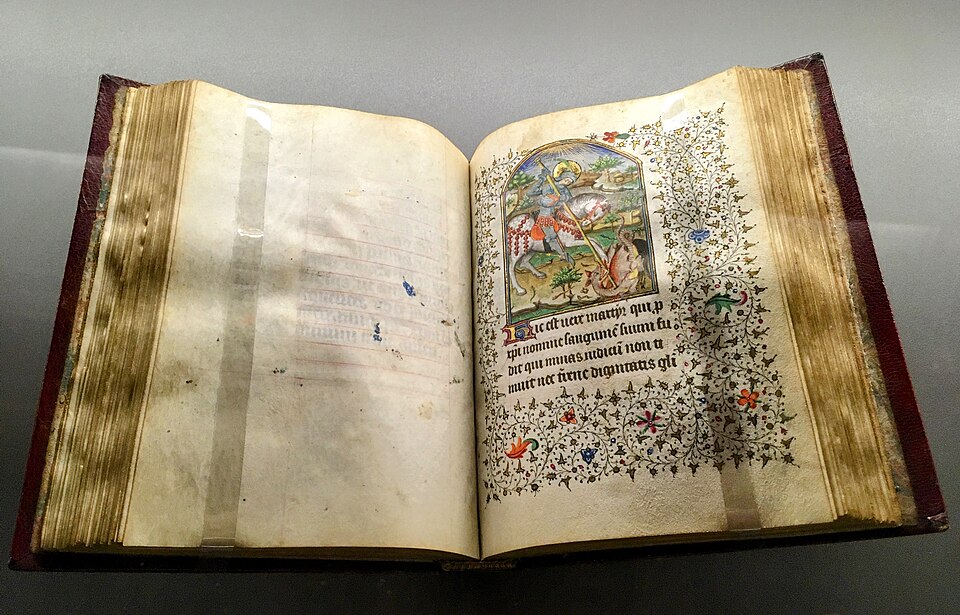 Hic est vere martyr qui p
xpi nomine sanguinē suum fu
dit qui minas iudicū non ti
muit nec t̄rene dignitatis gl̄i